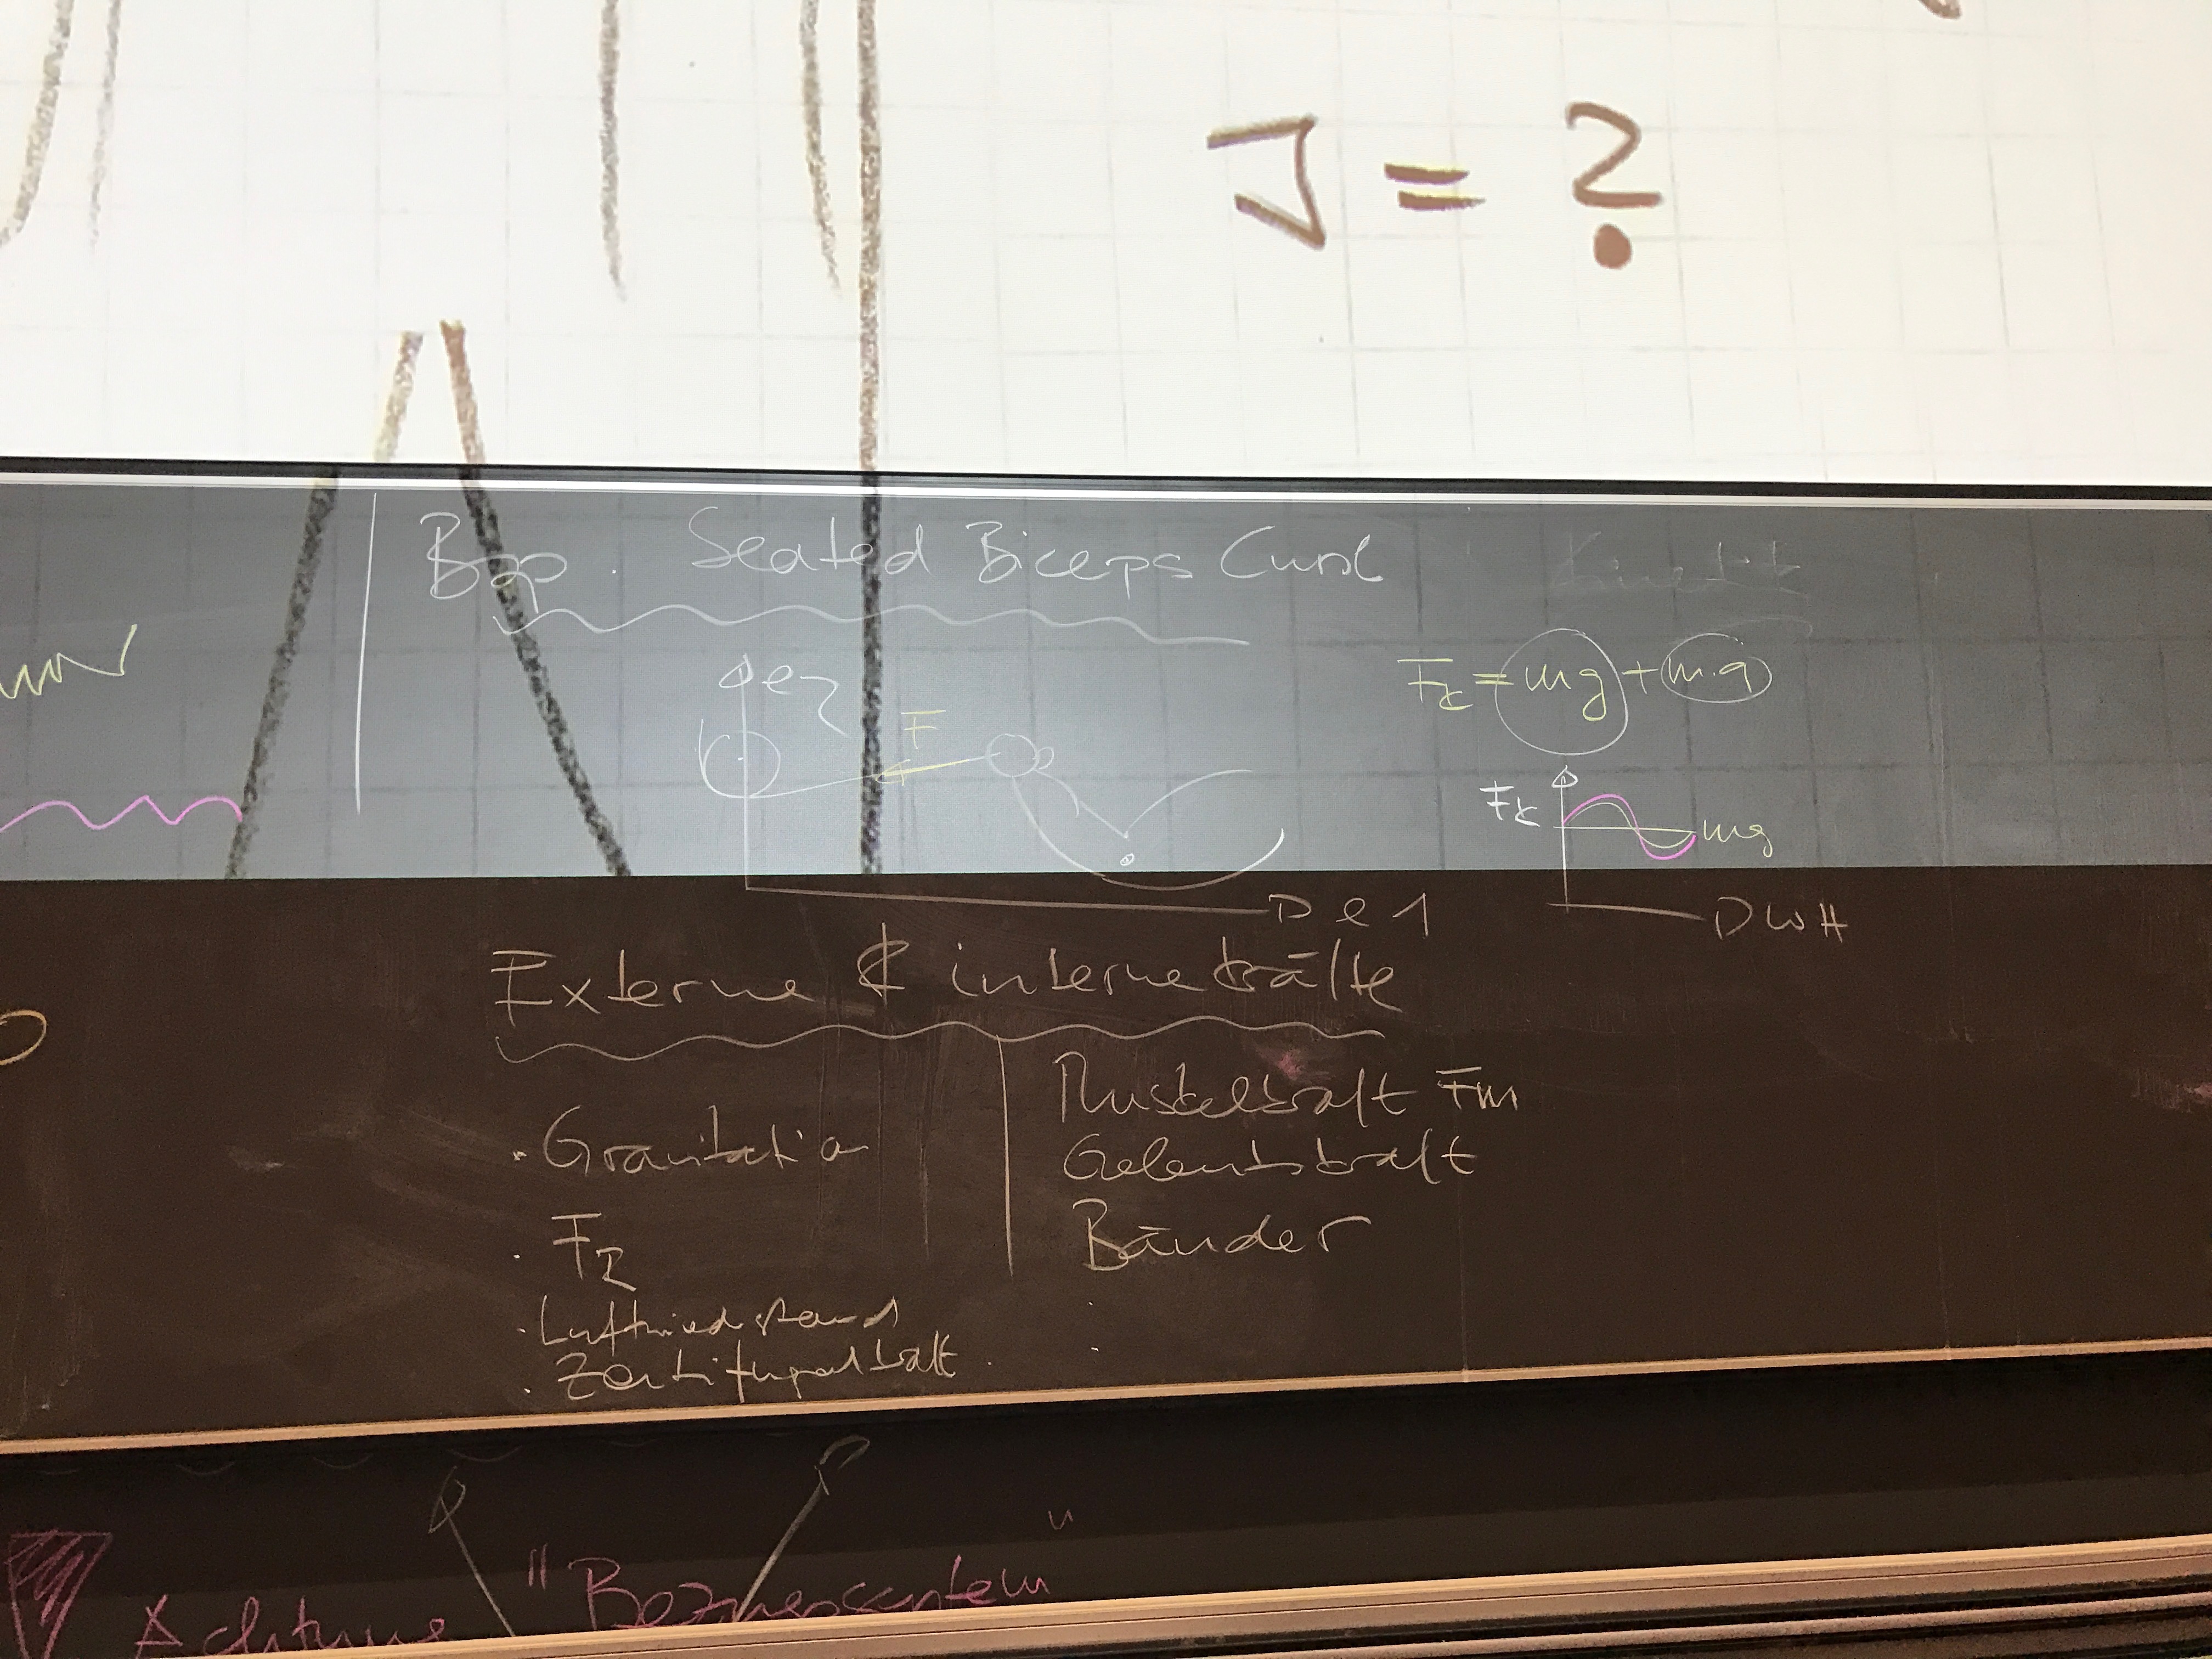 J = ?
Bsp. Seated Biceps Curl
Kinetik
e2
F
F_K = mg + m·a
F_K
mg
e1
WH
Externe & interne Kräfte
· Gravitation
· F_R
· Luftwiderstand
· Zentrifugalkraft
Muskelkraft Fm
Gelenkskraft
Bänder
Achtung "Bezugssystem"